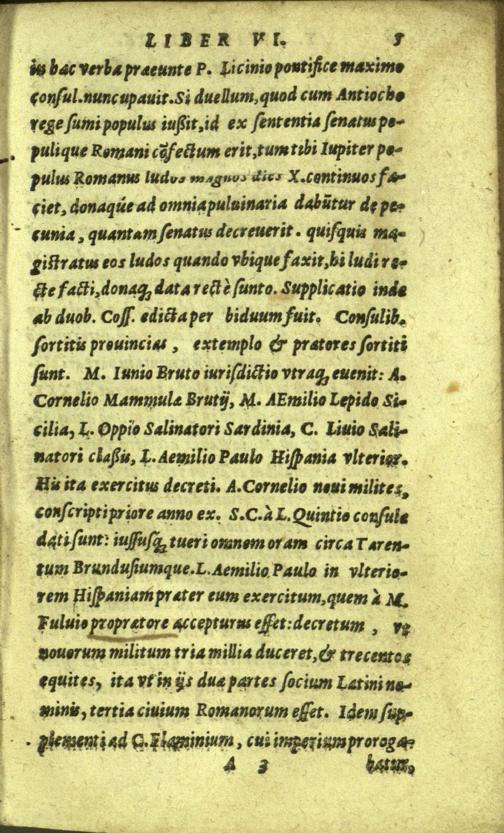 LIBER VI. 5
in hac verba praeunte P. Licinio pontifice maximo
consul.nuncupauit.Si duellum,quod cum Antiocho
rege sumi populus iußit,id ex sententia senatus po-
pulique Romani cōfectum erit,tum tibi Iupiter po-
pulus Romanus ludos magnos dies X.continuos fa-
ciet, donaqúe ad omnia puluinaria dabūtur de pe-
cunia, quantam senatus decreuerit. quisquis ma-
gistratus eos ludos quando vbique faxit,hi ludi re-
cte facti,donaq; data rectè sunto. Supplicatio inde
ab duob. Coss. edicta per biduum fuit. Consulib.
sortitis prouincias, extemplo & prætores sortiti
sunt. M. Iunio Bruto iurisdictio vtraq; euenit: A.
Cornelio Mammulæ Brutij, M. AEmilio Lepido Si-
cilia, L. Oppio Salinatori Sardinia, C. Liuio Sali-
natori claßis, L. Aemilio Paulo Hispania vlterior.
His ita exercitus decreti. A.Cornelio noui milites,
conscripti priore anno ex. S.C.à L.Quintio consule
dati sunt: iussusq; tueri omnem oram circa Taren-
tum Brundusiumque.L.Aemilio Paulo in vlterio-
rem Hispaniam præter eum exercitum,quem à M.
Fuluio proprætore accepturus esset:decretum, vt
nouorum militum tria millia duceret,& trecentos
equites, ita vt in ijs duæ partes socium Latini no-
minis, tertia ciuium Romanorum esset. Idem sup-
plementi ad C.Flaminium, cui imperium proroga-
A 3 batur,